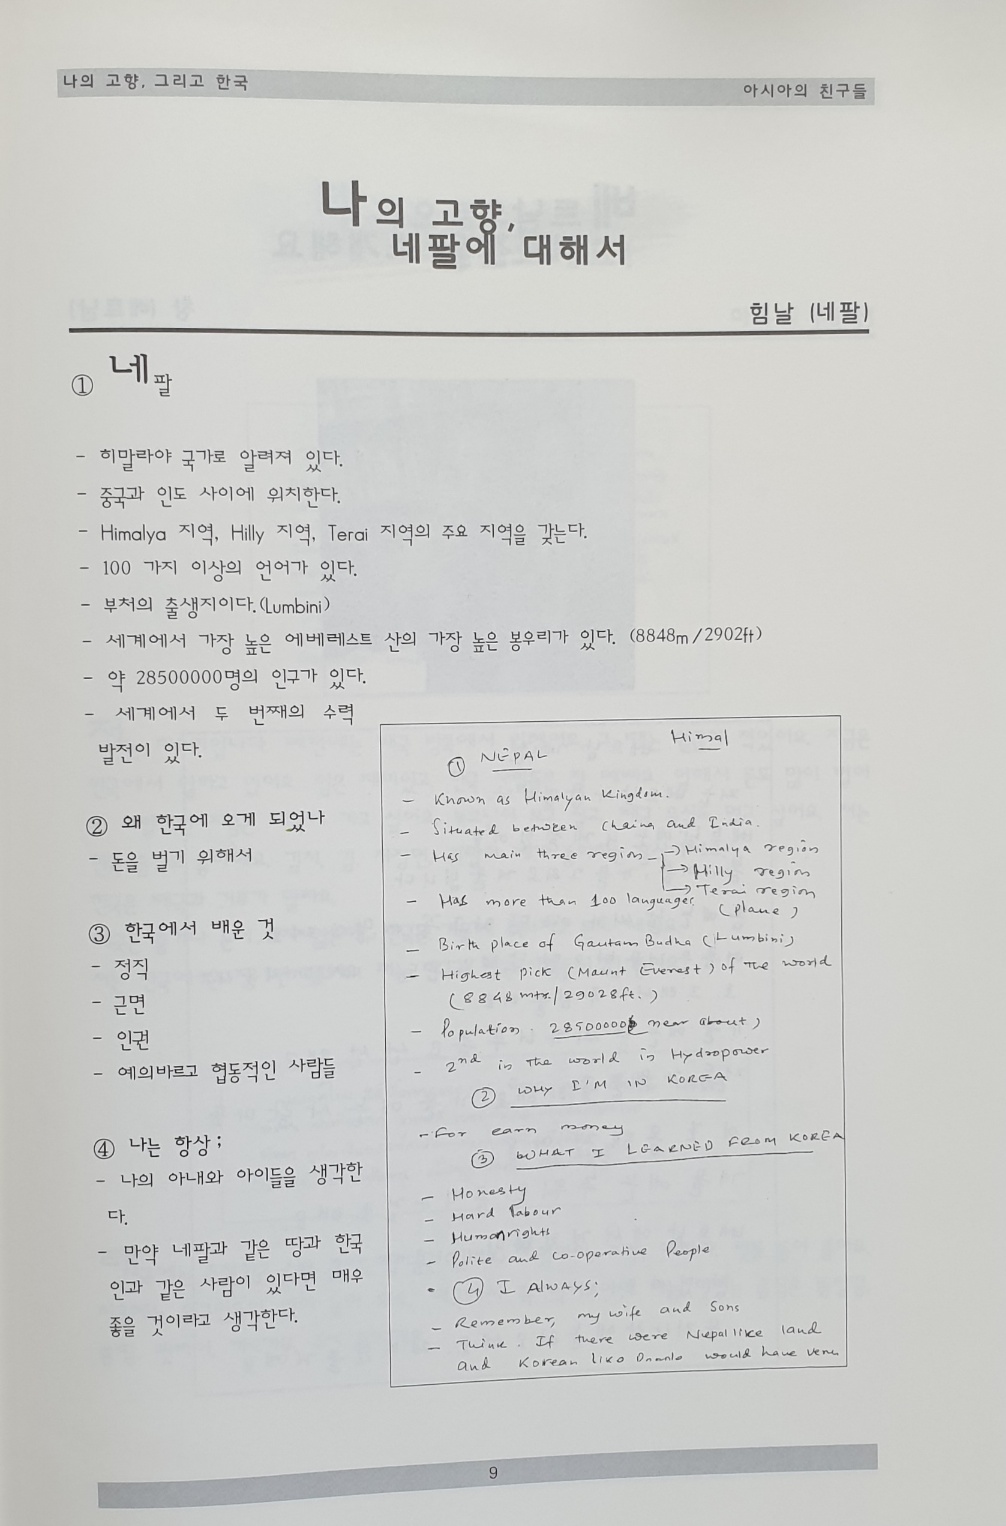 나의 고향, 그리고 한국
아시아의 친구들
나의 고향,
네팔에 대해서
힘날 (네팔)
① 네팔
- 히말라야 국가로 알려져 있다.
- 중국과 인도 사이에 위치한다.
- Himalya 지역, Hilly 지역, Terai 지역의 주요 지역을 갖는다.
- 100 가지 이상의 언어가 있다.
- 부처의 출생지이다.(Lumbini)
- 세계에서 가장 높은 에베레스트 산의 가장 높은 봉우리가 있다. (8848m/2902ft)
- 약 28500000명의 인구가 있다.
- 세계에서 두 번째의 수력
발전이 있다.
② 왜 한국에 오게 되었나
- 돈을 벌기 위해서
③ 한국에서 배운 것
- 정직
- 근면
- 인권
- 예의바르고 협동적인 사람들
④ 나는 항상;
- 나의 아내와 아이들을 생각한
다.
- 만약 네팔과 같은 땅과 한국
인과 같은 사람이 있다면 매우
좋을 것이라고 생각한다.
Himal
① NEPAL
- Known as Himalyan Kingdom.
- Situated between Chaina and India.
- Has main three region - → Himalya region
→ Hilly region
→ Terai region
- Has more than 100 languages
(plane)
- Birth place of Gautam Budha (Lumbini)
- Highest pick (Maunt Everest) of The world
(8848 mtr./29028ft.)
- Population. 28500000 near about)
- 2nd in The world in Hydropower
② WHY I'M IN KOREA
- For earn money
③ WHAT I LEARNED FROM KOREA
- Honesty
- Hard labour
- Human rights
- Polite and co-operative People
④ I ALWAYS;
- Remember, my wife and Sons
- Think. If there were Nepal like land
and Korean like would have
9